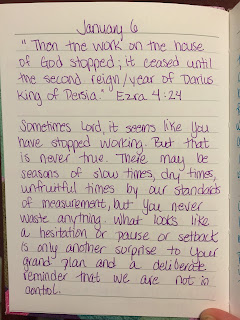 January 6
"Then the work on the house
of God stopped; it ceased until
the second reign/year of Darius
King of Persia." Ezra 4:24
Sometimes Lord, it seems like you
have stopped working. But that
is never true. There may be
seasons of slow times, dry times,
unfruitful times by our standards
of measurement, but you never
waste anything. What looks like
a hesitation or pause or setback
is only another surprise to your
grand plan and a deliberate
reminder that we are not in
control.